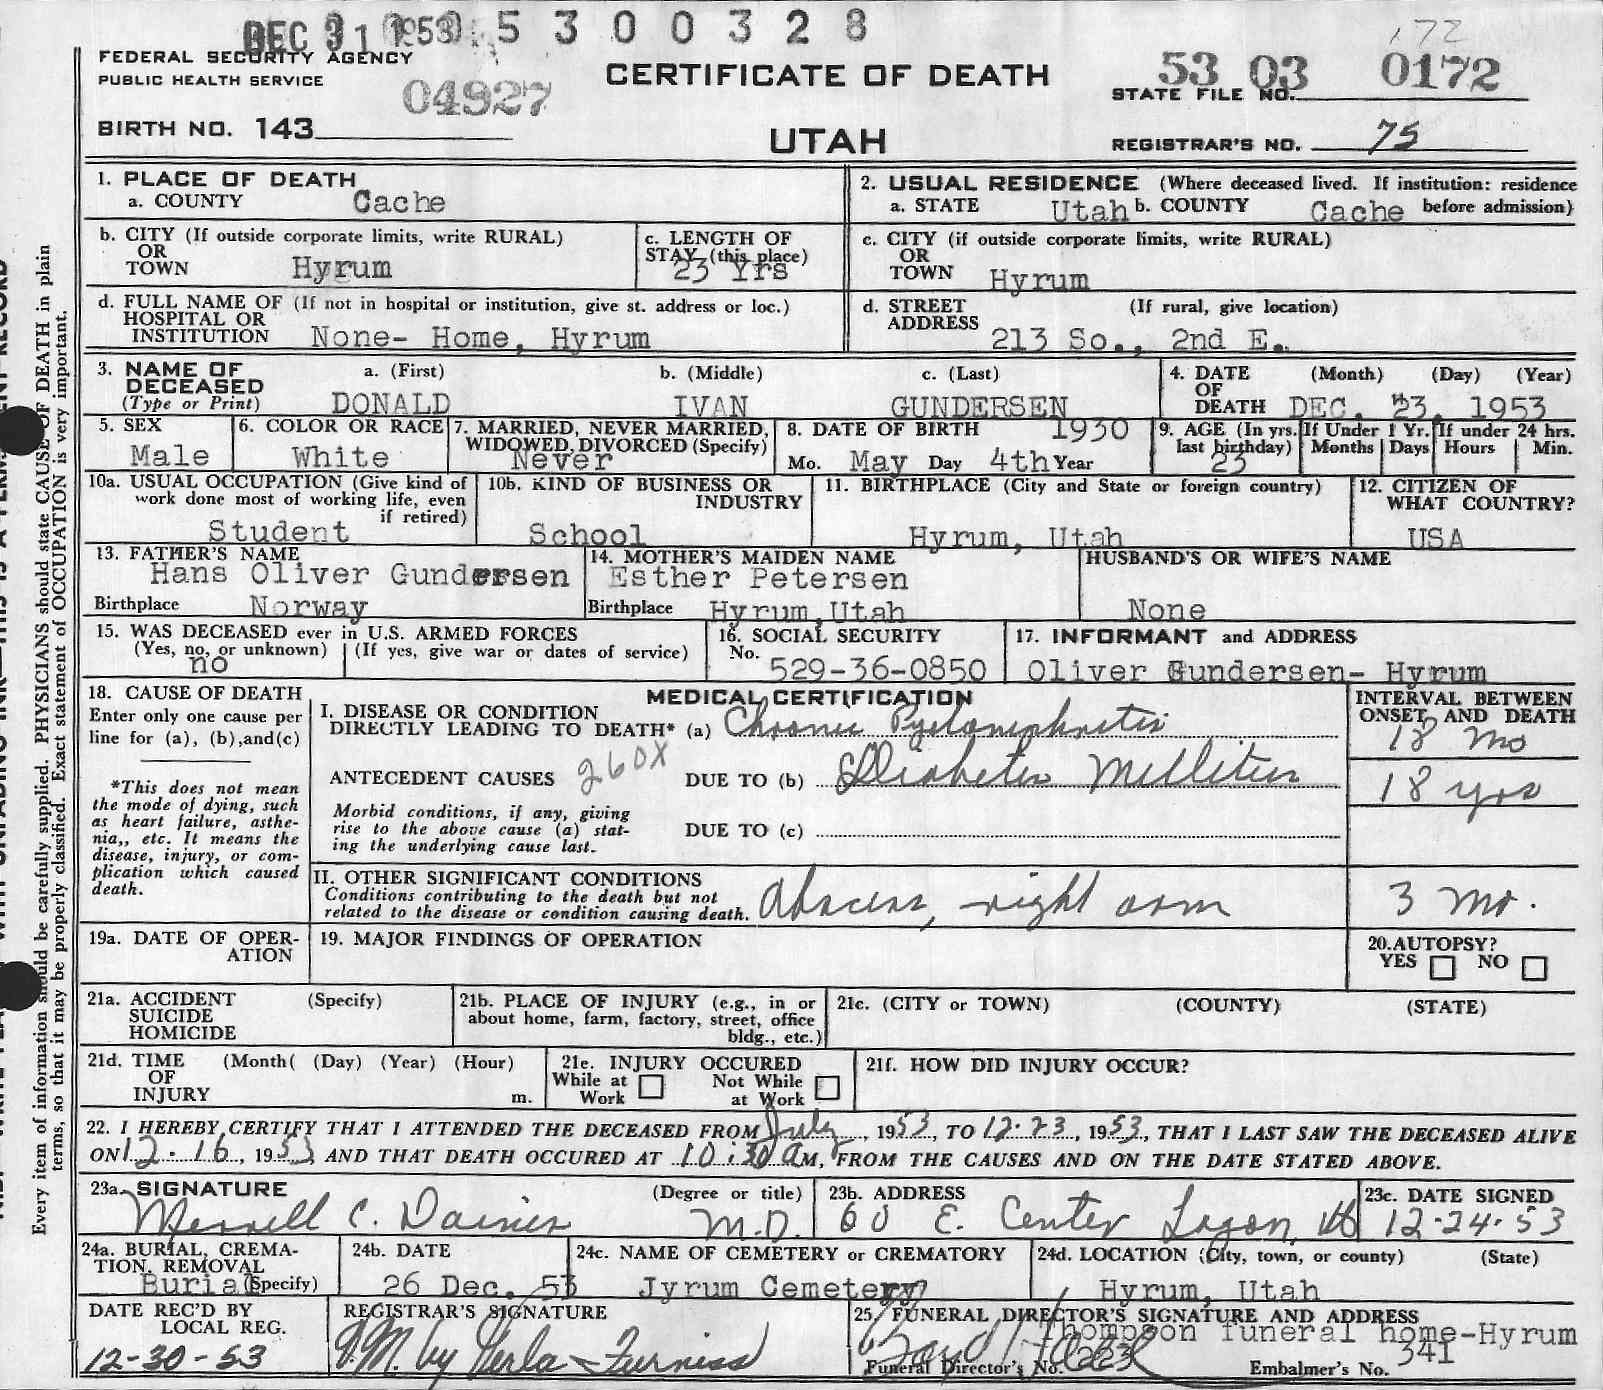 DEC 31 1953 5300328
172
FEDERAL SECURITY AGENCY
PUBLIC HEALTH SERVICE
04927
CERTIFICATE OF DEATH
53 03 0172
STATE FILE NO.
BIRTH NO. 143
UTAH
REGISTRAR'S NO. 75
1. PLACE OF DEATH
a. COUNTY Cache
2. USUAL RESIDENCE (Where deceased lived. If institution: residence
a. STATE Utah b. COUNTY Cache before admission)
b. CITY (If outside corporate limits, write RURAL)
OR
TOWN Hyrum
c. LENGTH OF
STAY (this place)
23 Yrs
c. CITY (if outside corporate limits, write RURAL)
OR
TOWN Hyrum
d. FULL NAME OF (If not in hospital or institution, give st. address or loc.)
HOSPITAL OR
INSTITUTION None- Home, Hyrum
d. STREET (If rural, give location)
ADDRESS
213 So., 2nd E.
3. NAME OF a. (First) b. (Middle) c. (Last)
DECEASED
(Type or Print) DONALD IVAN GUNDERSEN
4. DATE (Month) (Day) (Year)
OF
DEATH DEC. 23, 1953
5. SEX
Male
6. COLOR OR RACE
White
7. MARRIED, NEVER MARRIED,
WIDOWED, DIVORCED (Specify)
Never
8. DATE OF BIRTH 1930
Mo. May Day 4th Year
9. AGE (In yrs.
last birthday)
23
If Under 1 Yr.
Months Days
If under 24 hrs.
Hours Min.
10a. USUAL OCCUPATION (Give kind of
work done most of working life, even
if retired)
Student
10b. KIND OF BUSINESS OR
INDUSTRY
School
11. BIRTHPLACE (City and State or foreign country)
Hyrum, Utah
12. CITIZEN OF
WHAT COUNTRY?
USA
13. FATHER'S NAME
Hans Oliver Gundersen
Birthplace Norway
14. MOTHER'S MAIDEN NAME
Esther Petersen
Birthplace Hyrum, Utah
HUSBAND'S OR WIFE'S NAME
None
15. WAS DECEASED ever in U.S. ARMED FORCES
(Yes, no, or unknown) (If yes, give war or dates of service)
no
16. SOCIAL SECURITY
No. 529-36-0850
17. INFORMANT and ADDRESS
Oliver Gundersen- Hyrum
18. CAUSE OF DEATH
Enter only one cause per
line for (a), (b), and (c)
*This does not mean
the mode of dying, such
as heart failure, asthe-
nia,, etc. It means the
disease, injury, or com-
plication which caused
death.
MEDICAL CERTIFICATION
I. DISEASE OR CONDITION
DIRECTLY LEADING TO DEATH* (a) Chronic Pyelonephritis
INTERVAL BETWEEN
ONSET AND DEATH
18 mo
ANTECEDENT CAUSES 260X DUE TO (b) Diabetes Mellitus
18 yrs
Morbid conditions, if any, giving
rise to the above cause (a) stat-
ing the underlying cause last.
DUE TO (c)
II. OTHER SIGNIFICANT CONDITIONS
Conditions contributing to the death but not
related to the disease or condition causing death. Abscess, right arm
3 mo.
19a. DATE OF OPER-
ATION
19. MAJOR FINDINGS OF OPERATION
20. AUTOPSY?
YES NO
21a. ACCIDENT (Specify)
SUICIDE
HOMICIDE
21b. PLACE OF INJURY (e.g., in or
about home, farm, factory, street, office
bldg., etc.)
21c. (CITY or TOWN) (COUNTY) (STATE)
21d. TIME (Month( (Day) (Year) (Hour)
OF
INJURY m.
21e. INJURY OCCURED
While at Work Not While at Work
21f. HOW DID INJURY OCCUR?
22. I HEREBY CERTIFY THAT I ATTENDED THE DECEASED FROM July, 1953, TO 12-23, 1953, THAT I LAST SAW THE DECEASED ALIVE
ON 12-16, 1953 AND THAT DEATH OCCURED AT 10:30 a M, FROM THE CAUSES AND ON THE DATE STATED ABOVE.
23a. SIGNATURE (Degree or title)
Merrill C. Daines M.D.
23b. ADDRESS
60 E. Center Logan, Ut
23c. DATE SIGNED
12-24-53
24a. BURIAL, CREMA-
TION, REMOVAL
Burial (Specify)
24b. DATE
26 Dec. 53
24c. NAME OF CEMETERY or CREMATORY
Jyrum Cemetery
24d. LOCATION (City, town, or county) (State)
Hyrum, Utah
DATE REC'D BY
LOCAL REG.
12-30-53
REGISTRAR'S SIGNATURE
by Verla Furniss
25. FUNERAL DIRECTOR'S SIGNATURE AND ADDRESS
Thompson funeral home-Hyrum
Funeral Director's No. 223 Embalmer's No. 341
Every item of information should be carefully supplied. PHYSICIANS should state CAUSE OF DEATH in plain
terms, so that it may be properly classified. Exact statement of OCCUPATION is very important.